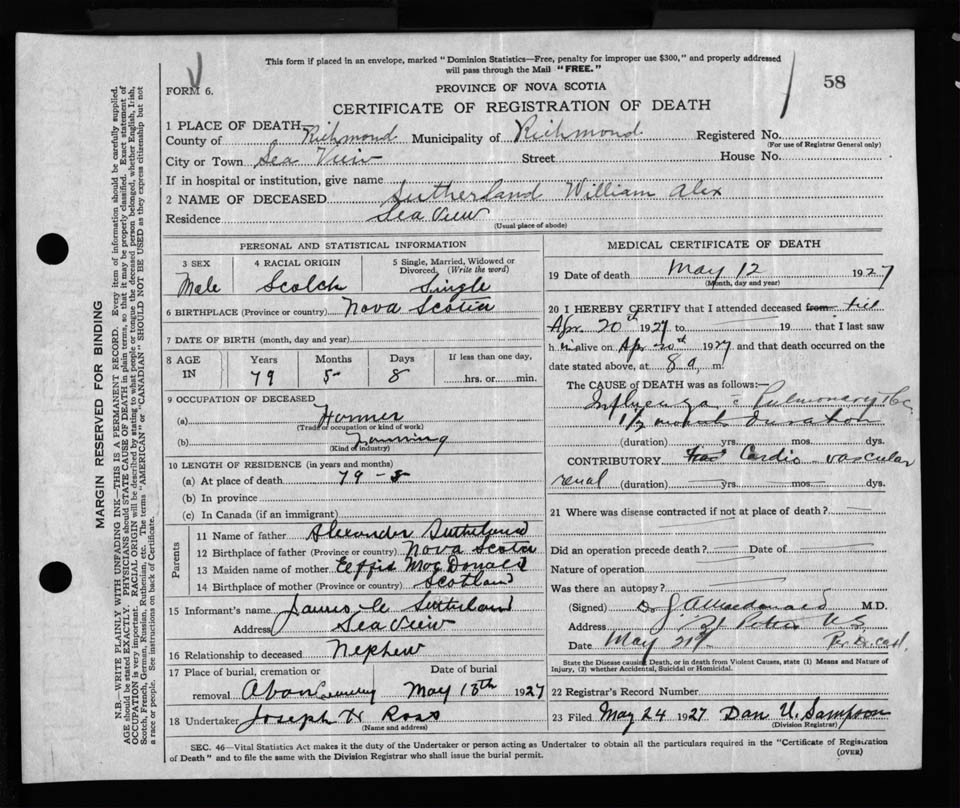 This form if placed in an envelope, marked "Dominion Statistics—Free, penalty for improper use $300," and properly addressed
will pass through the Mail "FREE."
58
FORM 6.
PROVINCE OF NOVA SCOTIA
CERTIFICATE OF REGISTRATION OF DEATH
1 PLACE OF DEATH
County of Richmond Municipality of Richmond Registered No.
(For use of Registrar General only)
City or Town Sea View Street House No.
If in hospital or institution, give name
2 NAME OF DECEASED Sutherland William Alex
Residence Sea View
(Usual place of abode)
PERSONAL AND STATISTICAL INFORMATION
3 SEX 4 RACIAL ORIGIN 5 Single, Married, Widowed or
Divorced. (Write the word)
Male Scotch Single
6 BIRTHPLACE (Province or country) Nova Scotia
7 DATE OF BIRTH (month, day and year)
8 AGE Years Months Days If less than one day,
IN 79 5 8 hrs. or min.
9 OCCUPATION OF DECEASED
(a) Farmer
(Trade or occupation or kind of work)
(b) Farming
(Kind of industry)
10 LENGTH OF RESIDENCE (in years and months)
(a) At place of death 79 - 5
(b) In province
(c) In Canada (if an immigrant)
Parents
11 Name of father Alexander Sutherland
12 Birthplace of father (Province or country) Nova Scotia
13 Maiden name of mother MacDonald
14 Birthplace of mother (Province or country) Scotland
15 Informant's name Sutherland
Address Sea View
16 Relationship to deceased Nephew
17 Place of burial, cremation or Date of burial
removal Cemetery May 1927
18 Undertaker Joseph H Ross
(Name and address)
MEDICAL CERTIFICATE OF DEATH
19 Date of death May 12 1927
(Month, day and year)
20 I HEREBY CERTIFY that I attended deceased from til
Apr. 20th 1927 to 19 that I last saw
him alive on Apr 20th 1927 and that death occurred on the
date stated above, at 8 a. m.
The CAUSE of DEATH was as follows:—
Influenza Pulmonary
duration
(duration) yrs. mos. dys.
CONTRIBUTORY Cardio vascular
renal (duration) yrs. mos. dys.
21 Where was disease contracted if not at place of death?
Did an operation precede death? Date of
Nature of operation
Was there an autopsy?
(Signed) Dr J A Macdonald M.D.
Address St Peters N.S.
Date May 21st
State the Disease causing Death, or in death from Violent Causes, state (1) Means and Nature of
Injury, (2) whether Accidental, Suicidal or Homicidal.
22 Registrar's Record Number
23 Filed May 24 1927 Dan U. Sampson
(Division Registrar)
SEC. 46—Vital Statistics Act makes it the duty of the Undertaker or person acting as Undertaker to obtain all the particulars required in the "Certificate of Registration
of Death" and to file the same with the Division Registrar who shall issue the burial permit.
(OVER)
MARGIN RESERVED FOR BINDING
N.B.—WRITE PLAINLY WITH UNFADING INK—THIS IS A PERMANENT RECORD. Every item of information should be carefully supplied.
AGE should be stated EXACTLY. PHYSICIANS should STATE CAUSE OF DEATH in plain terms, so that it may be properly classified. Exact statement of
OCCUPATION is very important. RACIAL ORIGIN will be described by stating to what people or tongue the deceased person belonged, whether English, Irish,
Scotch, French, German, Russian, Ruthenian, etc. The terms "AMERICAN" or "CANADIAN" SHOULD NOT BE USED as they express citizenship but not
a race or people. See instructions on back of Certificate.